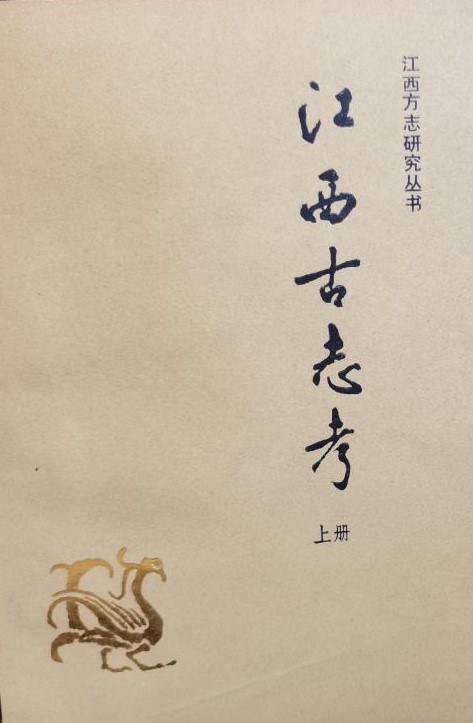 江西方志研究丛书
江西古志考
上册